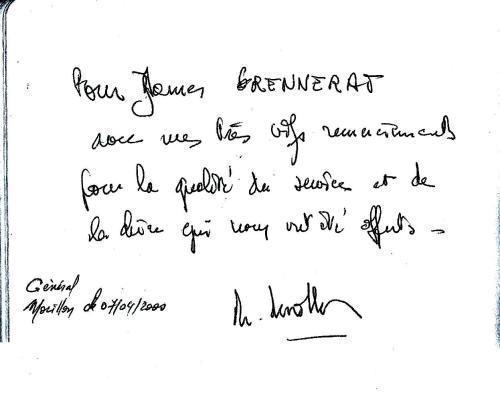 Pour James GRENNERAT
avec mes très vifs remerciements
pour la qualité du service et de
la chère qui nous ont été offerts -
Général
Morillon le 07/04/2000
Ph. Morillon